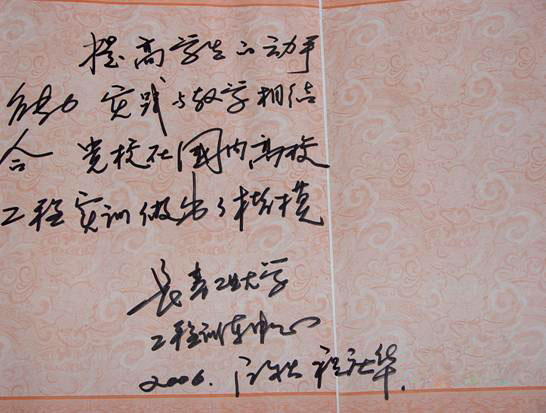 提高学生的动手
能力 实践与教学相结
合 贵校在国内高校
工程实训做出了楷模
长春工业大学
工程训练中心
2006.